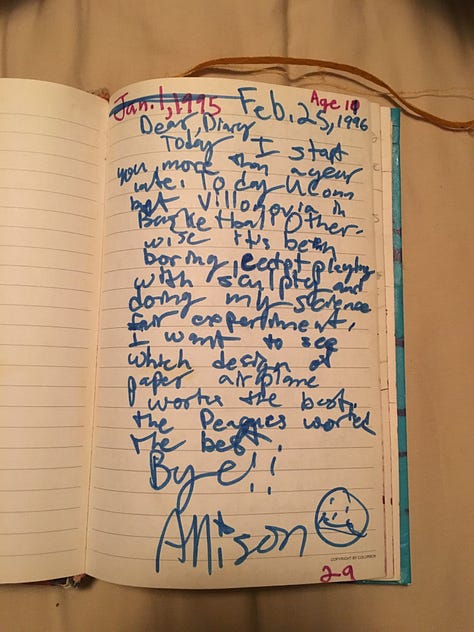 Jan. 1, 1995 Feb. 25, 1996 Age 10
Dear, Diary
Today I start
you more than a year
late. Today UConn
bet Villonovia in
Basketball Other-
wise its bean
boring, playing
with sculpty and
doing my science
fair experiment.
I want to see
which design of
paper airplane
works the best.
the worked
the best.
Bye!!
Allison
COPYRIGHT BY COLUMBIA
2-9